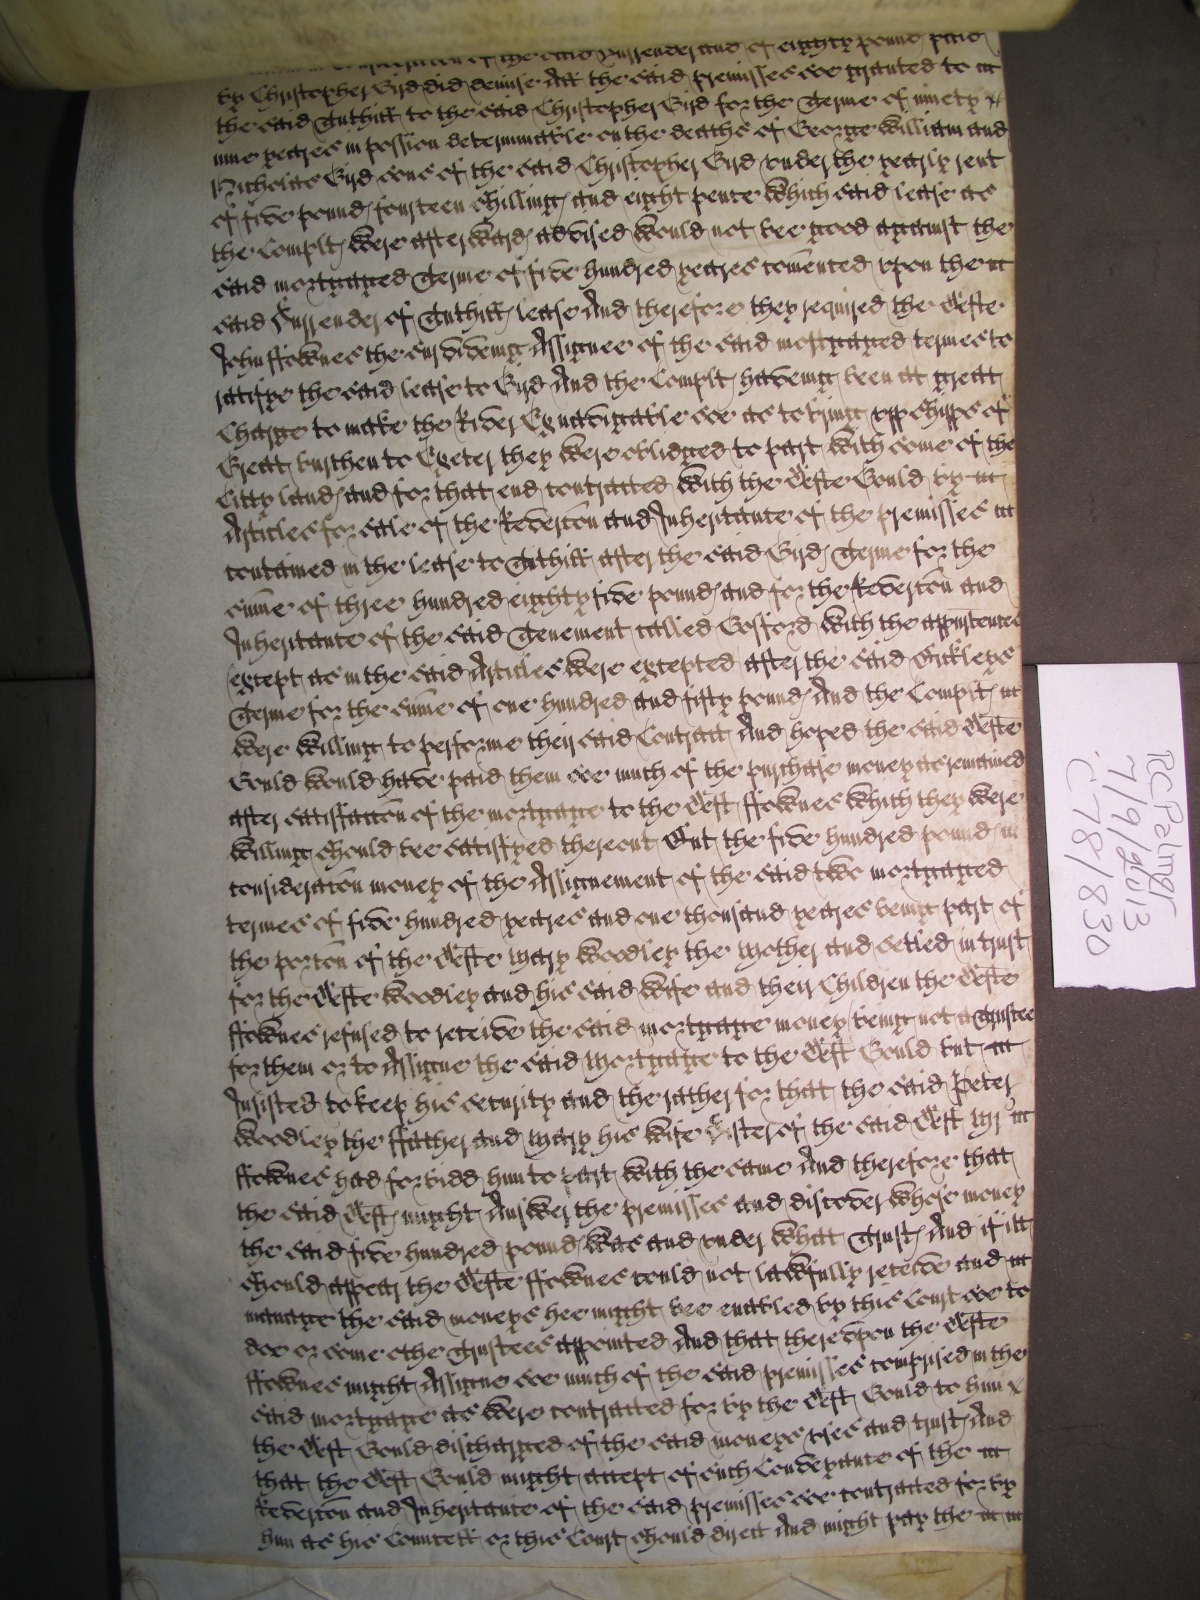 in Consideracon of the said Surrender and of eighty pound paid
by Christopher Bird did demise All the said premisses soe granted to
the said Tuthill to the said Christopher Bird for the Terme of ninety
nine yeares in possion determinable on the deaths of George William and
Nicholas Bird sons of the said Christopher Bird under the yearly rent
of five pound fourteen shilling and eight pence Which said lease as
the Complts Were afterward advised Would not bee good against the
said mortgaged Terme of five hundred yeares comenced upon the
said Surrender of Tuthills lease And therefore they required the Defte
John ffownes the surviveing Assignee of the said mortgaged termes to
ratifye the said lease to Bird And the Complts haveing been att great
Charge to make the River Ex navigable soe as to bring upp Shipps of
Great burthen to Exeter they Were obliged to part With some of the
Citty lands and for that end contracted With the Defte Gould by
Articles for sale of the Revercon and Inheritance of the premisses
contained in the lease to Tuthill after the said Birds Terme for the
sume of three hundred eighty five pound and for the Revercon and
Inheritance of the said Tenement called Gosford With the appurtences
except as in the said Articles Were excepted after the said Sickleys
Terme for the sume of one hundred and fifty pound And the Complts
Were Willing to performe their said Contract And hoped the said Defte
Gould Would have paid them soe much of the purchase money as remained
after satisfaccon of the mortgage to the Deft ffownes Which they Were
Willing should bee satisfyed thereout But the five hundred pound
consideracon money of the Assignement of the said two mortgaged
termes of five hundred yeares and one thousand yeares being part of
the porcon of the Defte Mary Woodley the Mother and setled in trust
for the Defte Woodley and his said Wife and their Children the Defte
ffownes refused to receive the said mortgage money being not a Trustee
for them or to Assigne the said Mortgage to the Deft Gould but
Insisted to keep his security and the rather for that the said Peter
Woodley the ffather and Mary his Wife Sister of the said Deft Mr
ffownes had forbidd him to part With the same And therefore that
the said Defts might Answer the premisses and discover Whose money
the said five hundred pound Was and under What Trust And if itt
should appear the Defte ffownes could not lawfully receive and
manage the said moneys hee might bee enabled by this Court soe to
doe or some other Trustees appointed And that thereupon the Defte
ffownes might Assigne soe much of the said premisses comprised in the
said mortgage as Were contracted for by the Deft Gould to him
the Deft Gould discharged of the said moneys uses and trust And
that the Deft Gould might accept of such Conveyance of the
Revercon and Inheritance of the said premisses soe contracted for by
him as his Councell or this Court should direct And might pay the
RCPalmer
7/9/2013
C 78/1830